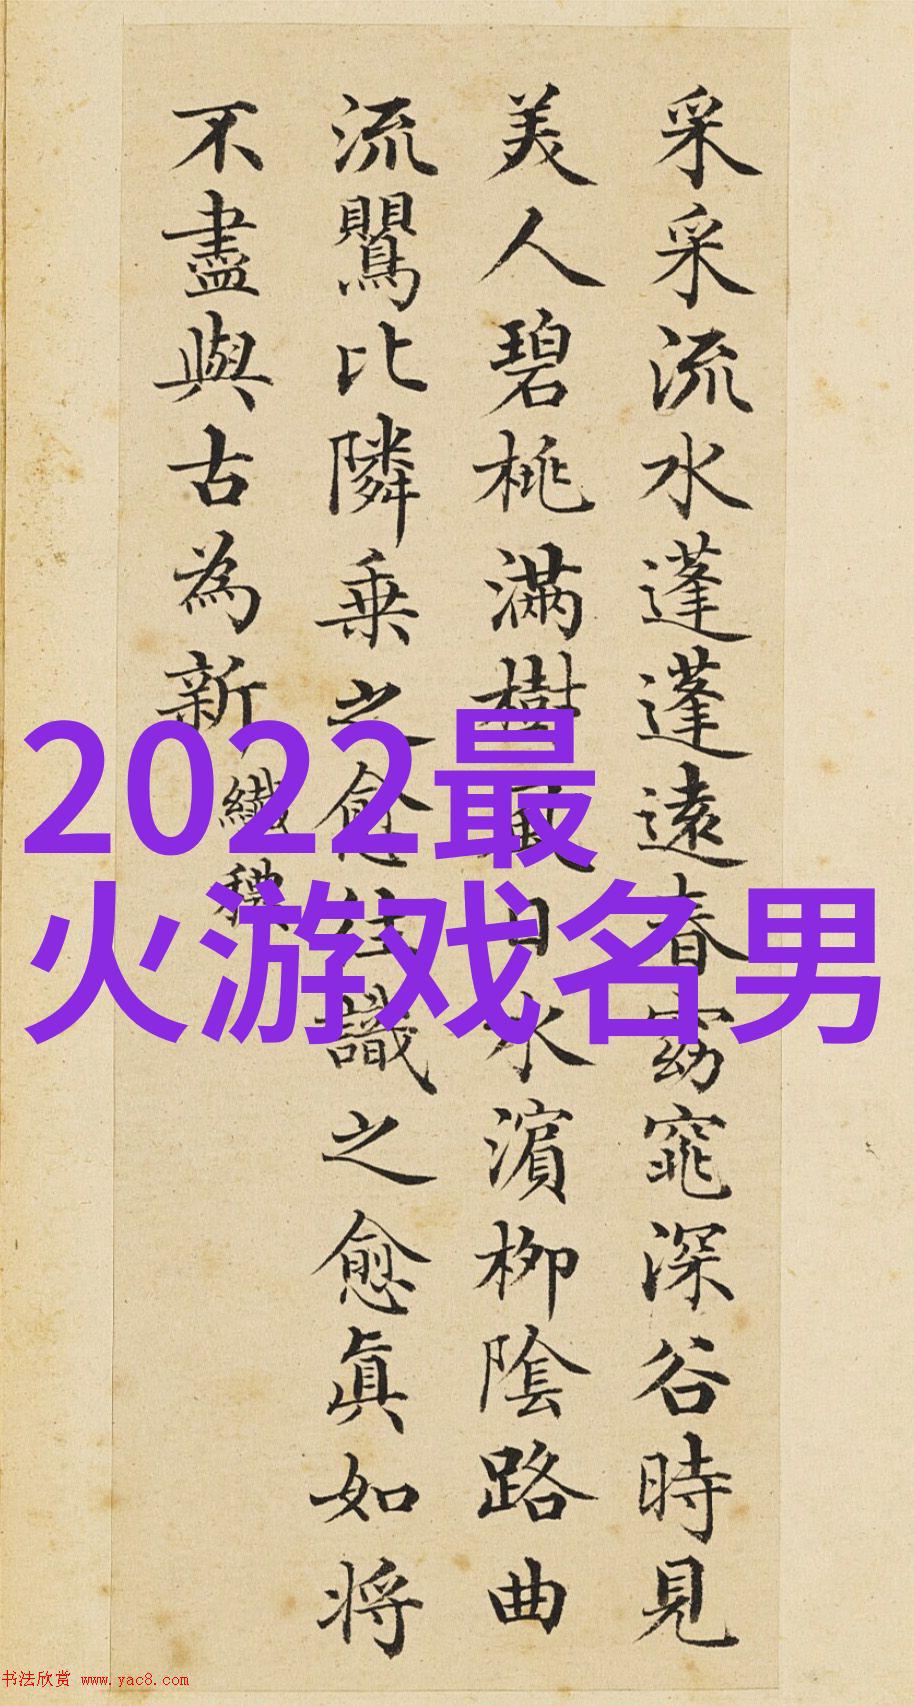 采采流水蓬蓬遠春窈窕深谷時見
美人碧桃滿樹風日水濱柳陰路曲
流鶯比隣乗之愈往識之愈眞如将
不盡與古為新
纖穠
2022最
火游戏名男
书法欣赏 www.yac8.com